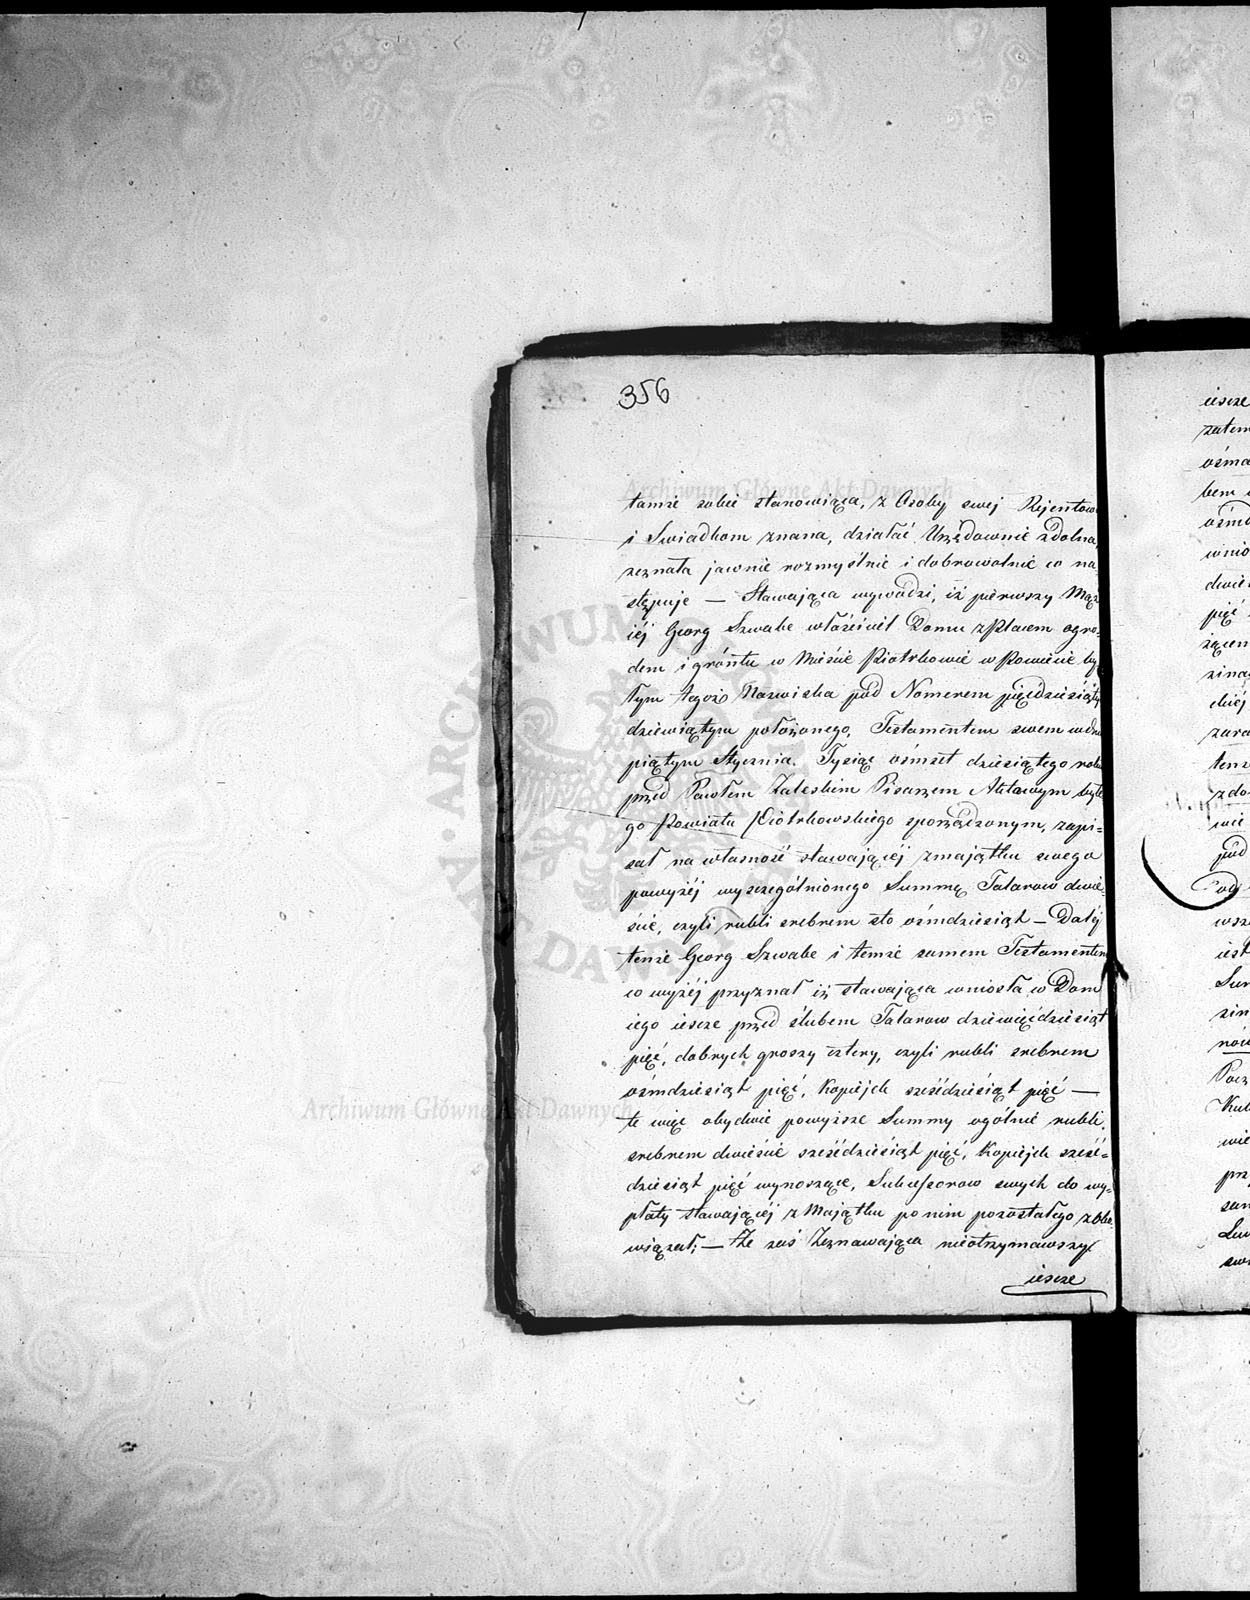 356
tamże sobie stanowiąca, z Osoby swej Rejentow
i Swiadkom znana, działać Urzędownie zdolna,
zeznała jawnie rozmyślnie i dobrowolnie co na
stępuje — Stawająca wywodzi, iż pierwszy Mąż
iéj Georg Szwabe właściciel Domu z Placem ogro=
dem i gróntu w Mieście Piotrkowie w Powiecie by
łym tegoż Nazwiska pod Nomerem pięćdziesiąty
dziewiątym położonego, Testamentem swem w dniu
piątym Stycznia Tysiąc ośmset dziesiątego roku
przed Pawłem Zaleskim Pisarzem Aktowym byłe
go Powiatu Piotrkowskiego sporządzonym, zapi=
sał na własność stawającéj z majątku swego
powyżéj wyszczególnionego Summę Talarow dwie=
ście, czyli rubli srebrem sto ośmdziesiąt — Daléj
tenże Georg Szwabe i temże samem Testamentem
co wyżéj przyznał iż stawająca wniosła w Dom
iego iescze przed ślubem Talarow dziewięćdziesiąt
pięć, dobrych groszy cztery, czyli rubli srebrem
ośmdziesiąt pięć, Kopiejek sześćdziesiąt pięć —
te więc obydwie powyższe Summy ogólnie rubli
srebrem dwieście sześćdziesiąt pięć, Kopiejek sześć=
dziesiąt pięć wynoszące, Sukcessorow swych do wy=
płaty stawającéj z Majątku po nim pozostałego zobo
wiązał; — Że zaś Zeznawająca nieotrzymawszy
iescze
iescze
zatem
ośmd
wnio
dwie
pięć
temż
pod
wsz
Sum